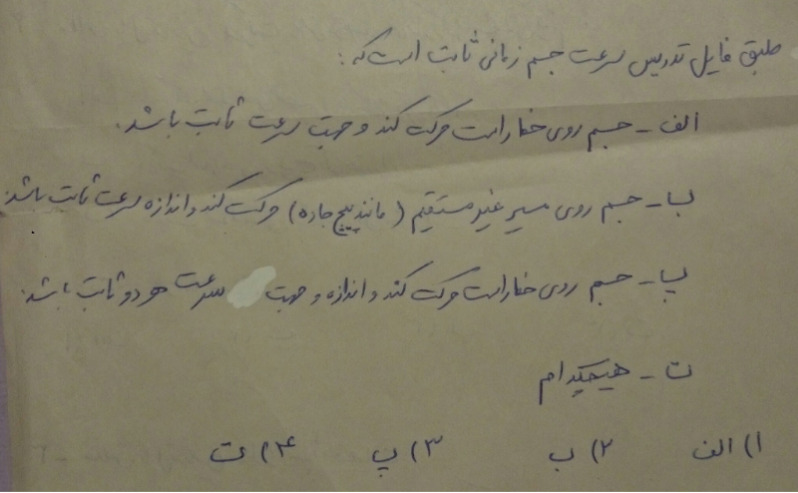 طبق فایل تدریس سرعت جسم زمانی ثابت است که:
الف - جسم روی خط راست حرکت کند و جهت سرعت ثابت باشد.
ب - جسم روی مسیر غیر مستقیم (مانند پیچ جاده) حرکت کند و اندازه سرعت ثابت باشد.
پ - جسم روی خط راست حرکت کند و اندازه و جهت سرعت هر دو ثابت باشد.
ت - هیچکدام
۱) الف ۲) ب ۳) پ ۴) ت